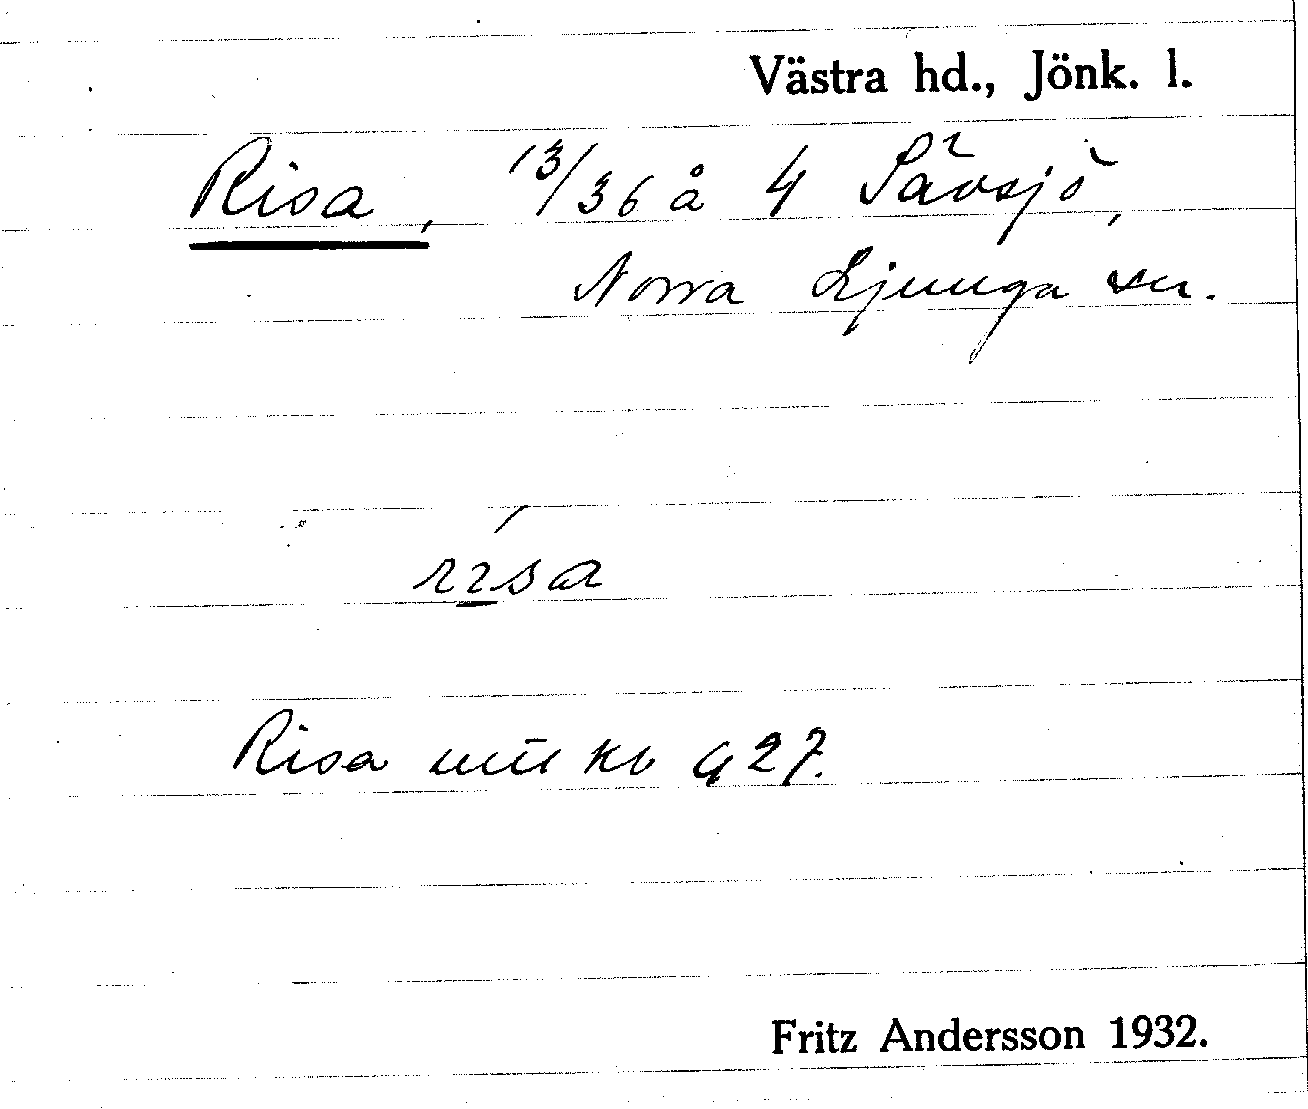 Västra hd., Jönk. l.
Risa, 13/36 å 4 Sävsjö,
Norra Ljunga sn.
rí̱sa
Risa kb 927.
Fritz Andersson 1932.